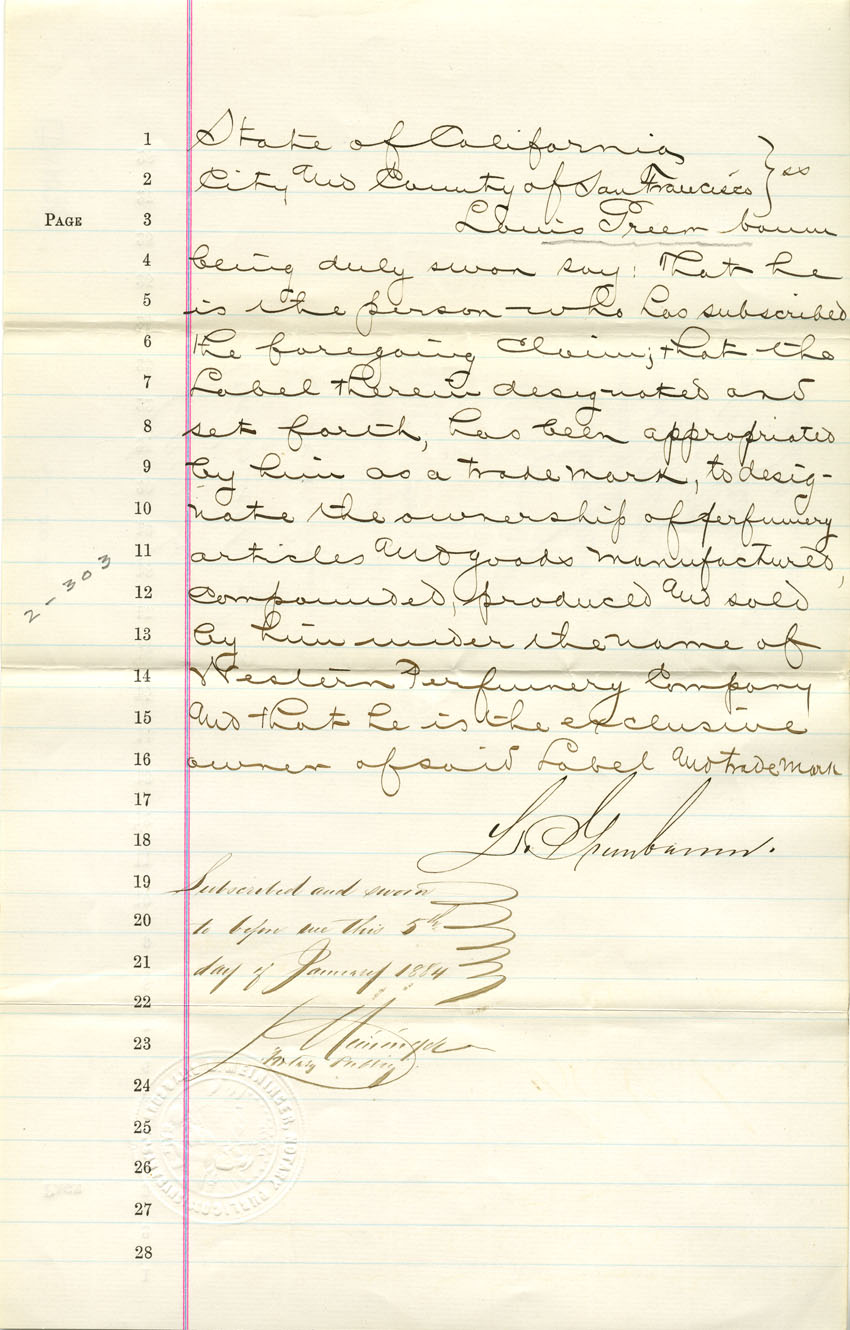 1 State of California
2 City and County of San Francisco } ss
PAGE 3 Louis Greenbaum
4 being duly sworn say: That he
5 is the person who has subscribed
6 the foregoing Claim; that the
7 Label therein designated and
8 set forth, has been appropriated
9 by him as a trade mark, to desig-
10 nate the ownership of perfumery
11 articles and goods manufactured,
2-303
12 compounded, produced and sold
13 by him under the name of
14 Western Perfumery Company
15 and that he is the exclusive
16 owner of said Label and trade mark
17
18 L. Greenbaum.
19 Subscribed and sworn
20 to before me this 5th
21 day of January 1884
22
23 Meininger
Notary Public
24
MEININGER, NOTARY PUBLIC
25
26
27
28